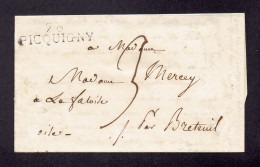 76
PICQUIGNY
a Madame
Madame Mercey
3
a La faloise
oise
par Breteuil